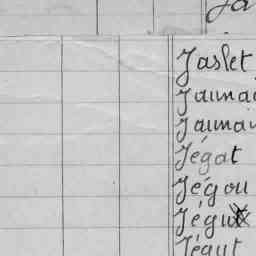 Ja
Jaslet
Jaunay
Jaunay
Jégat
Jégou
Jégu
Jégut